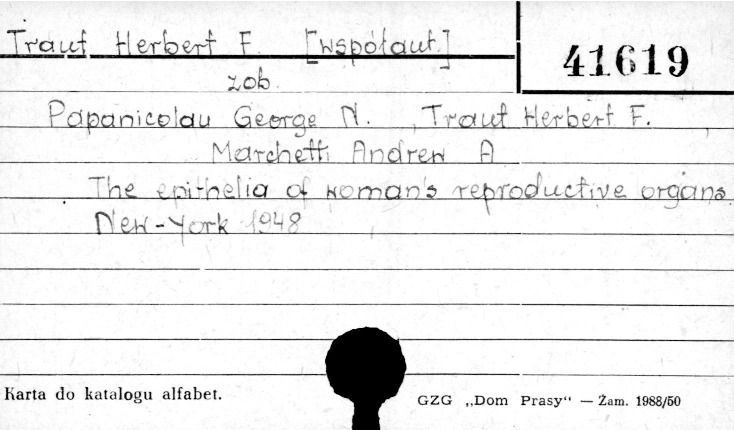 Traut Herbert F. [współaut.]
41619
zob.
Papanicolau George N., Traut Herbert F.,
Marchetti Andrew A
The epithelia of woman's reproductive organs.
New-York 1948
Karta do katalogu alfabet.
GZG „Dom Prasy“ — Żam. 1988/50